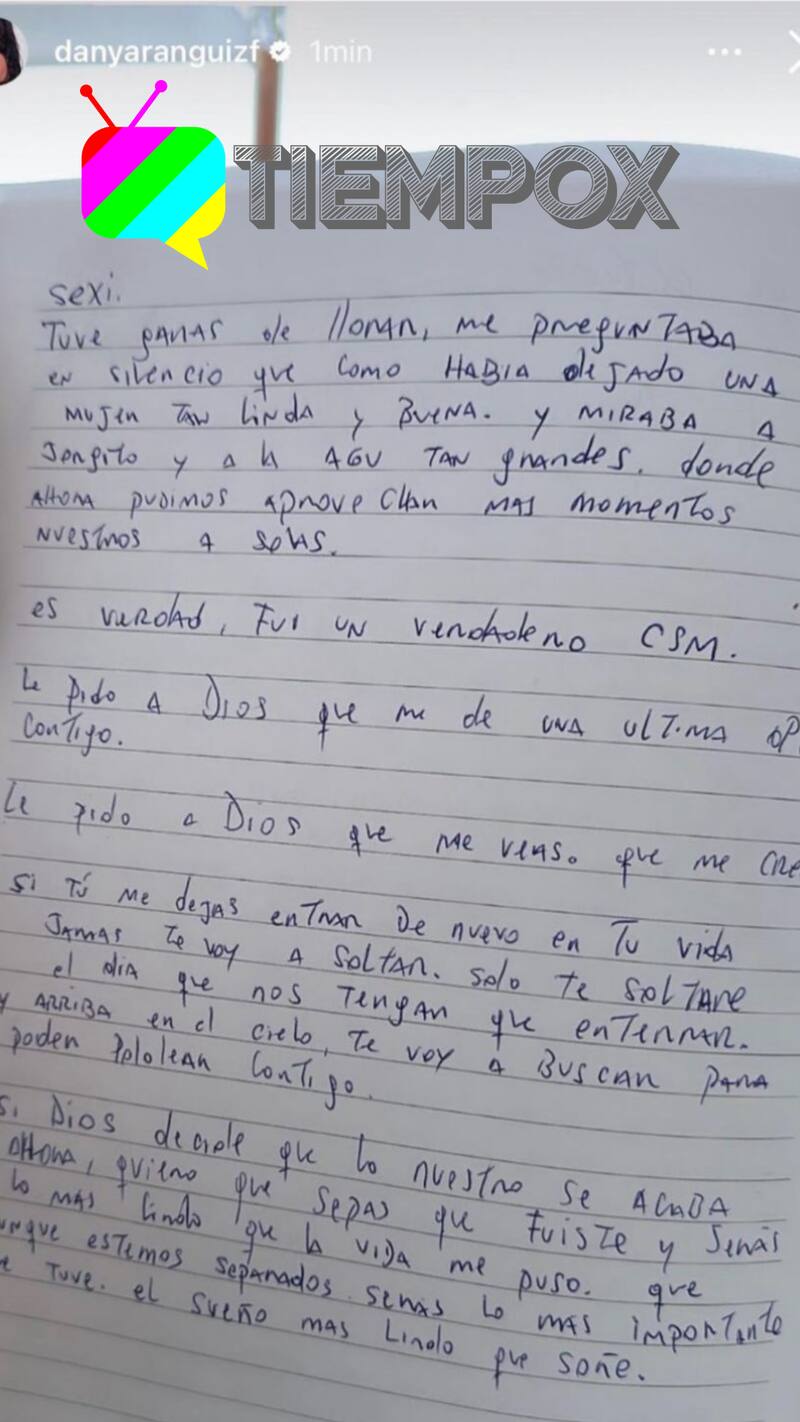 danyaranguizf 1min
TIEMPOX
sexi.
Tuve ganas de llorar, me preguntaba
en silencio que como había dejado una
mujer tan linda y buena. y miraba a
Jorgito y a la Agu tan grandes. donde
ahora pudimos aprovechar mas momentos
nuestros a solas.
es verdad, fui un verdadero CSM.
Le pido a Dios que me de una ultima op
contigo.
Le pido a Dios que me veas. que me cre
si tú me dejas entrar de nuevo en tu vida
jamas te voy a soltar. solo te soltare
el dia que nos tengan que enterrar.
y arriba en el cielo, te voy a buscar para
poder pololear contigo.
si Dios decide que lo nuestro se acaba
ahora, quiero que sepas que fuiste y serás
lo mas lindo que la vida me puso. que
unque estemos separados. serás lo mas importante
e tuve. el sueño mas lindo que soñe.